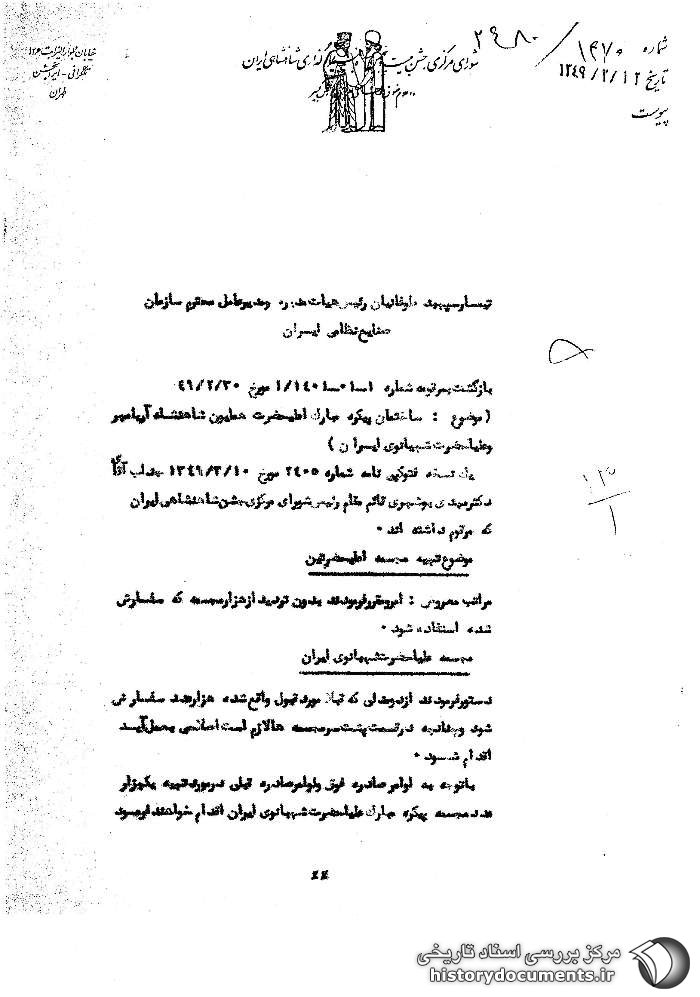 شماره ۱۴۷۰ / ۲۴۸۰
تاریخ ۱۳۴۹/۳/۱۲
پیوست
شورای مرکزی جشن شاهنشاهی ایران
خیابان
تهران
تیمسار سپهبد طوفانیان رئیس هیات مدیره و مدیرعامل محترم سازمان
صنایع نظامی ایران
بازگشت بمرقومه شماره مورخ ۴۹/۲/۳۰
( موضوع : ساختمان پیکره مبارک اعلیحضرت همایون شاهنشاه آریامهر
و علیاحضرت شهبانوی ایران )
یک نسخه فتوکپی نامه شماره ۲۴۰۵ مورخ ۱۳۴۹/۳/۱۰ جناب آقای
دکتر مهدی بوشهری قائم مقام رئیس شورای مرکزی جشن شاهنشاهی ایران
که مرقوم داشته اند ۰
موضوع تهیه مجسمه اعلیحضرتین
مراتب معروض : امر و مقرر فرمودند بدون تردید از هزار مجسمه که سفارش
شده استفاده شود ۰
مجسمه علیاحضرت شهبانوی ایران
دستور فرمودند از دو مدلی که قبلا مورد قبول واقع شده هزار عدد سفارش
شود و چنانچه در قسمت پشت سر مجسمه ها لازم است اصلاحی بعمل آید
اقدام شود ۰
با توجه به اوامر صادره فوق و اوامر صادره قبلی در مورد تهیه یکهزار
عدد مجسمه پیکره مبارک علیاحضرت شهبانوی ایران اقدام خواهند فرمود
۴۴
مرکز بررسی اسناد تاریخی
historydocuments.ir